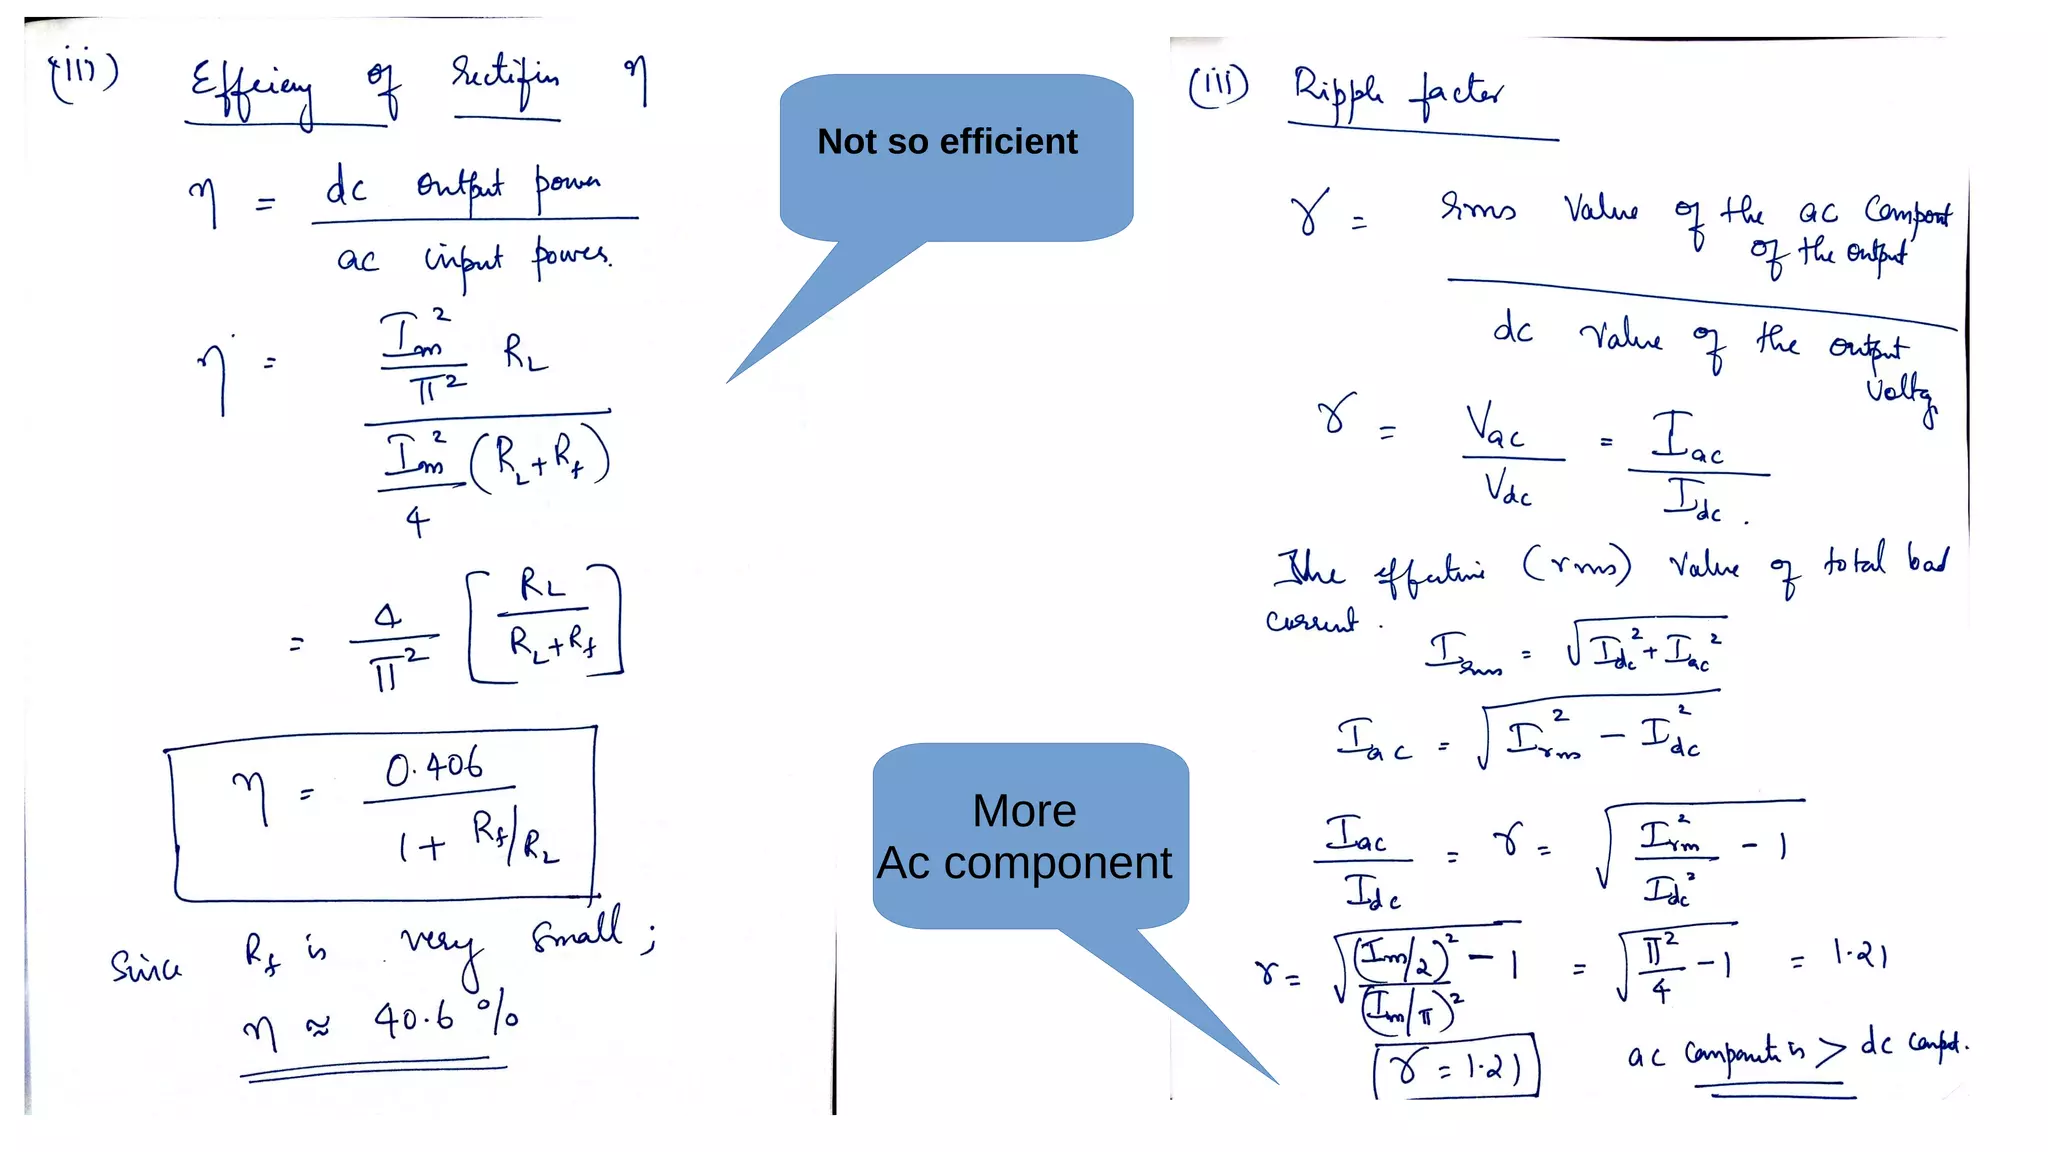 (iii) Efficiency of rectifier η
η = dc output power
ac input power.
η = Im² R_L
π²
Im² (R_L + R_f)
4
= 4 [ R_L
π² R_L + R_f ]
η = 0.406
1 + R_f/R_L
Since R_f is very small;
η ≈ 40.6 %
Not so efficient
More
Ac component
(iii) Ripple factor
γ = rms value of the ac component
of the output
dc value of the output
voltage
γ = Vac = Iac
Vdc Idc.
The effective (rms) value of total load
current.
Irms = √Idc² + Iac²
Iac = √Irms² − Idc²
Iac = γ = √Irms² − 1
Idc Idc²
γ = √(Im/2)² − 1 = √π² − 1 = 1.21
(Im/π)² 4
γ = 1.21
ac component is > dc compt.